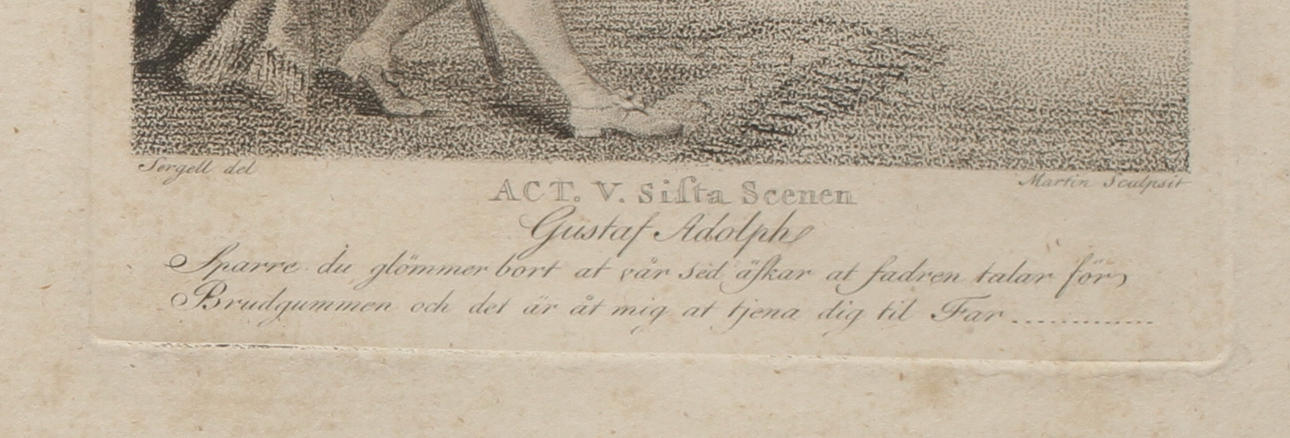 Sergell del
Martin Sculpsit
ACT. V. Siſta Scenen
Gustaf Adolph
Sparre du glömmer bort at vår sed äſkar at fadren talar för
Brudgummen och det är åt mig at tjena dig til Far ..............